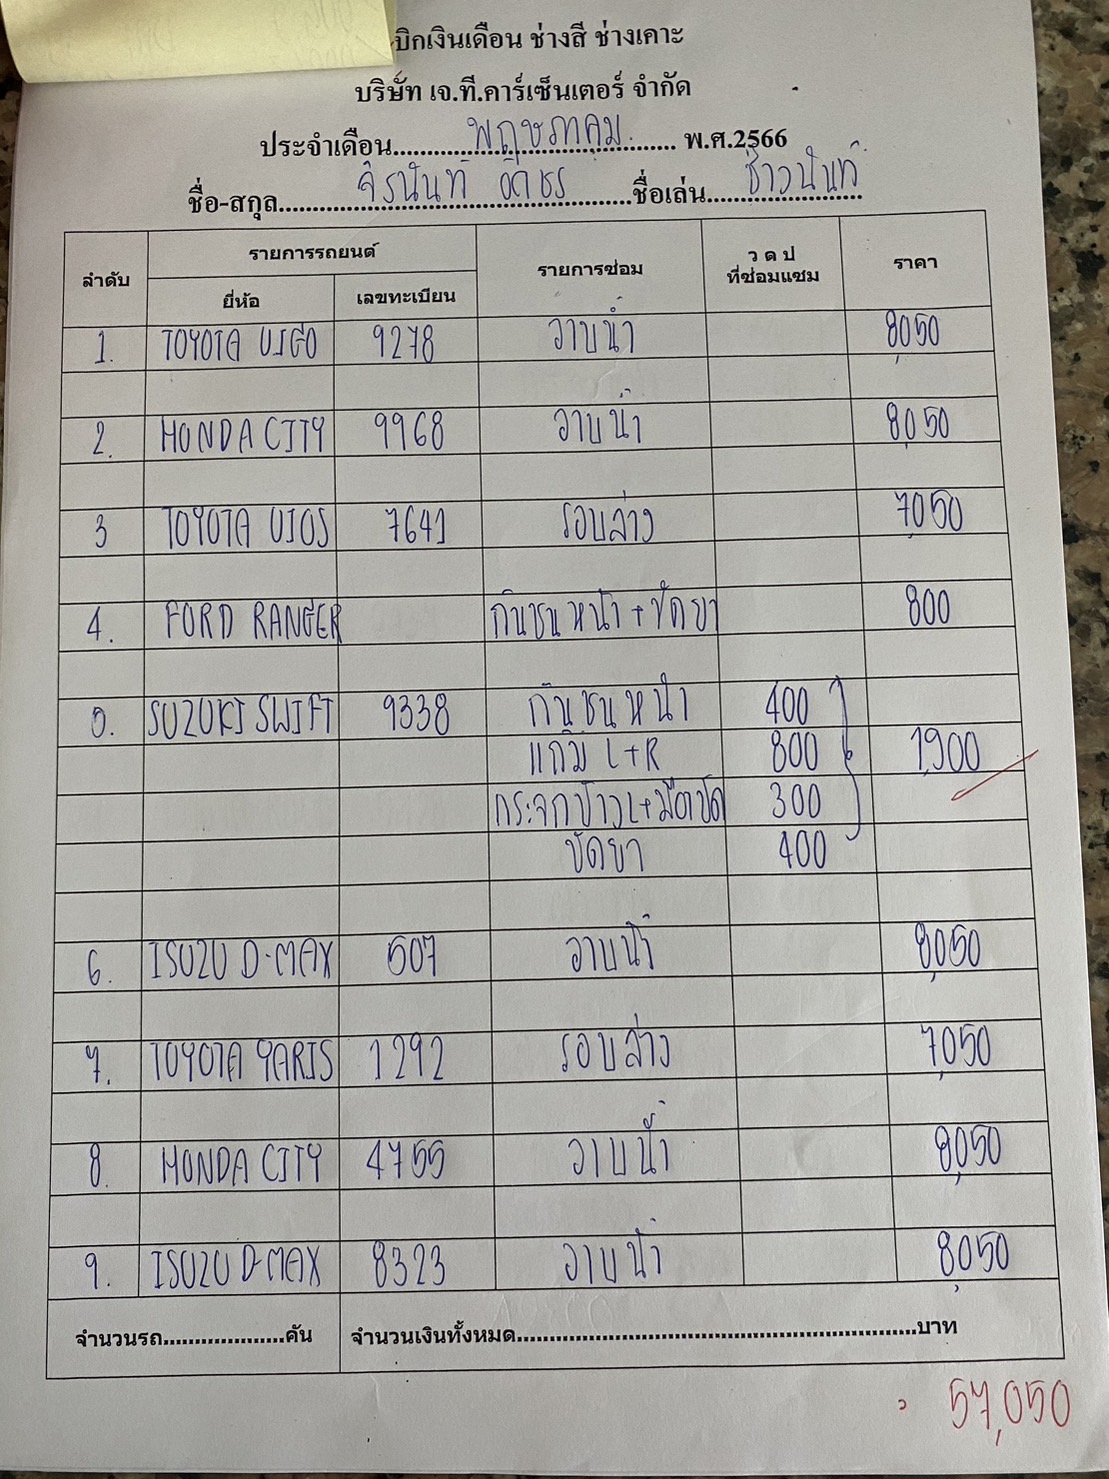 บิกเงินเดือน ช่างสี ช่างเคาะ
บริษัท เจ.ที.คาร์เซ็นเตอร์ จำกัด
ประจำเดือน พฤษภาคม พ.ศ.2566
ชื่อ-สกุล จิรนันท์ ชื่อเล่น ช่างนันท์
ลำดับ รายการรถยนต์ รายการซ่อม ว ด ป ที่ซ่อมแซม ราคา
ยี่ห้อ เลขทะเบียน
1. TOYOTA VIGO 9278 อาบน้ำ 8,050
2. HONDA CITY 9968 อาบน้ำ 8,050
3 TOYOTA VIOS 7641 รอบล่าง 7,050
4. FORD RANGER กันชนหน้า + ขัดยา 800
5. SUZUKI SWIFT 9338 กันชนหน้า 400
แก้ม L+R 800 1,900
กระจกข้าง L+มือขัด 300
ขัดยา 400
6. ISUZU D-MAX 507 อาบน้ำ 8,050
7. TOYOTA YARIS 1292 รอบล่าง 7,050
8. HONDA CITY 4755 อาบน้ำ 8,050
9. ISUZU D-MAX 8323 อาบน้ำ 8,050
จำนวนรถ....................คัน จำนวนเงินทั้งหมด....................บาท
57,050